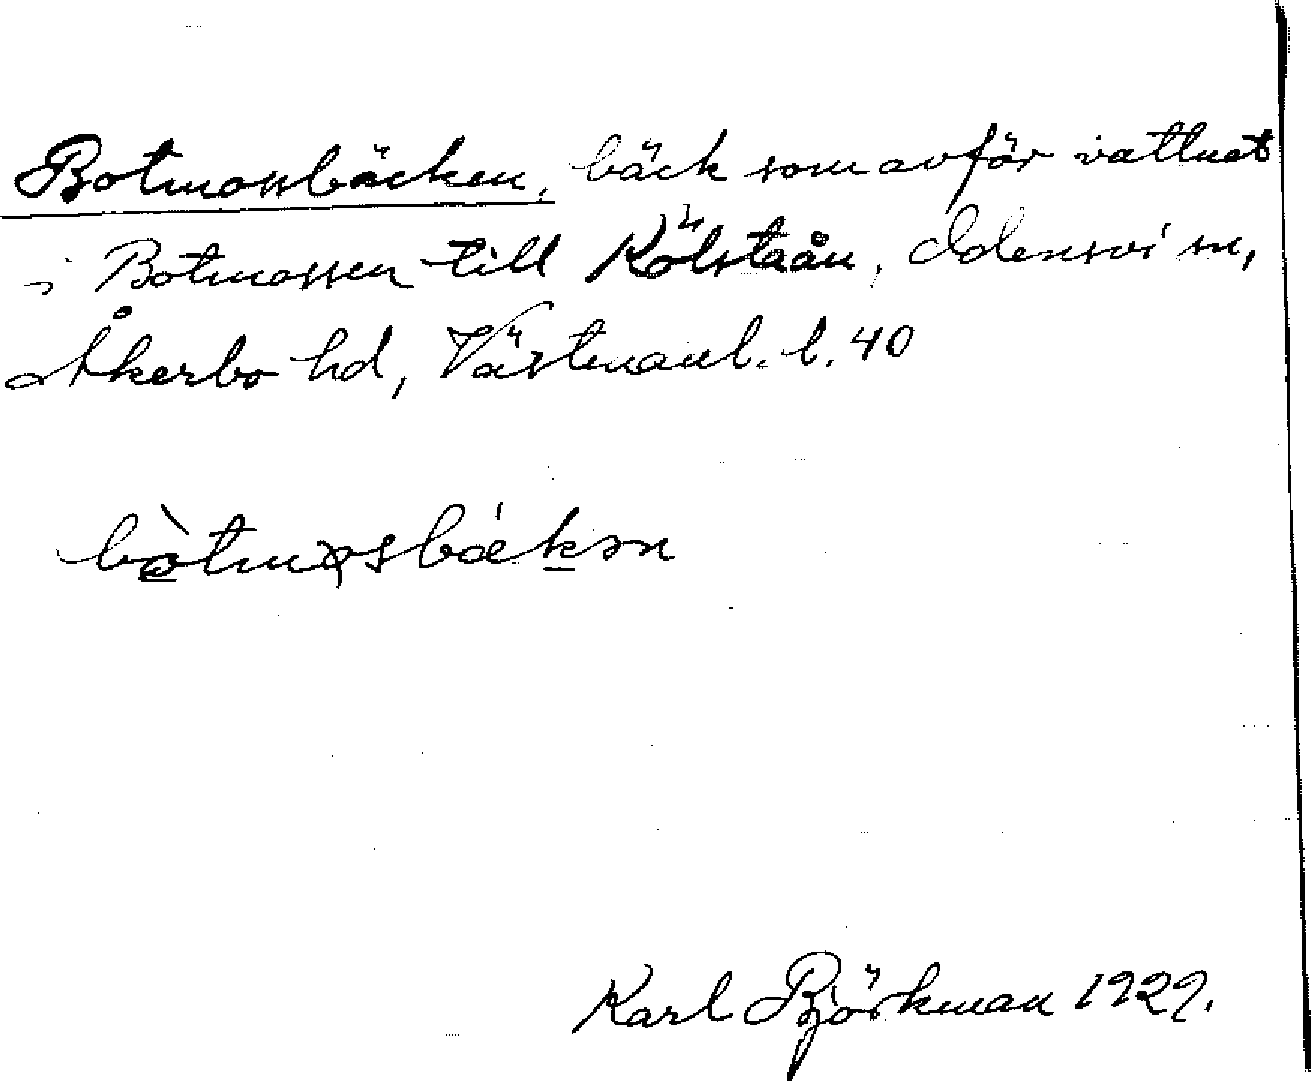 Botmossbäcken, bäck som avför vattnet
i Botmossen till Kölstaån, Odensvi sn,
Åkerbo hd, Västmanl. l. 40
bòtmɔsbǽkən
Karl Björkman 1929.